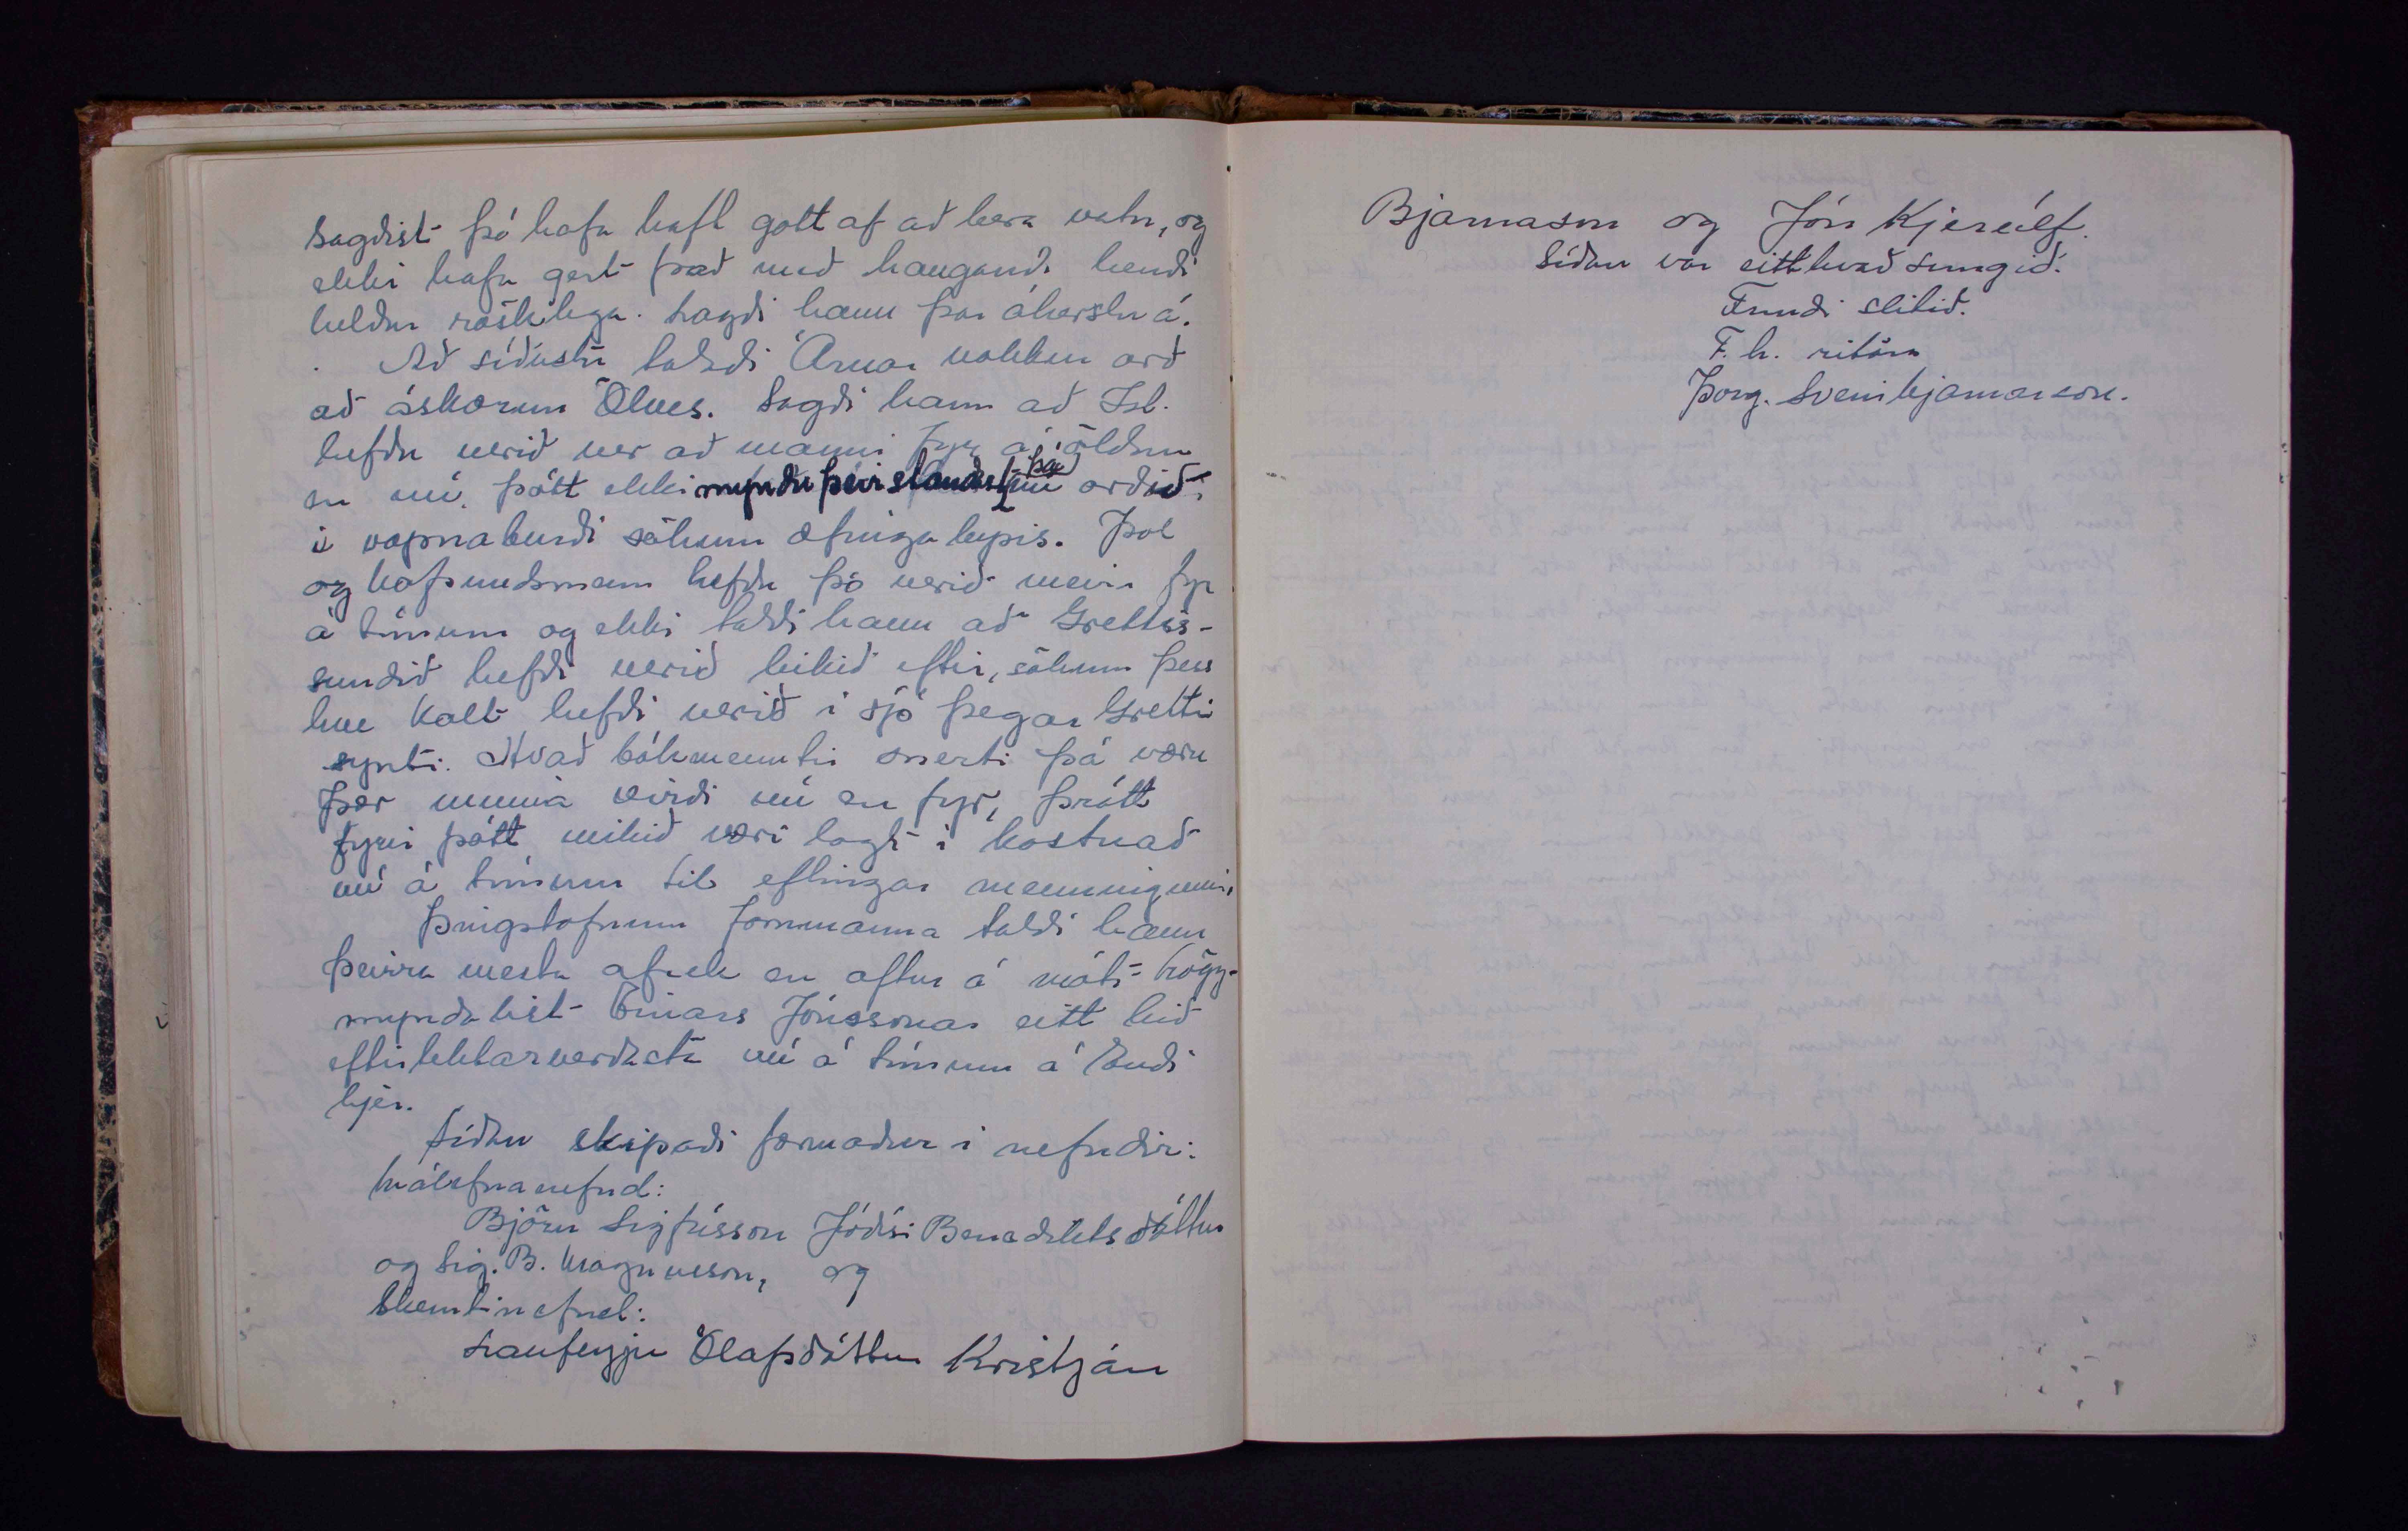 Sagðist þó hafa haft gott af að bera vatn, og
ekki hafa gert það með hangandi hendi
heldur rösklega. Lagði hann þar áherslu á.
Að síðustu talaði Arnar nokkur orð
að áskorun Ölves. Sagði hann að Ísl.
hefðu verið ver að manni fyr á öldum
en nú, þótt ekki myndu þeir standast þá nú orðið
í vopnaburði sökum æfingaleysis. Þol
og hófsundsmenn hefðu þó verið meiri fyr
á tímum og ekki taldi hann að Grettis-
sundið hefði verið leikið eftir, sökum þess
hve kalt hefði verið í sjó þegar Grettir
synti. Hvað bókmenntir snerti þá væru
þær minna virði nú en fyr, þrátt
fyrir þótt mikið væri lagt í kostnað
nú á tímum til eflingar menningunni,
Þingstofnun fornmanna taldi hann
þeirra mesta afrek en aftur á móti högg-
myndalist Einars Jónssonar eitt hið
eftirtektarverðasta nú á tímum á landi
hjer.
Síðan skipaði formaður í nefndir:
Málefnanefnd:
Björn Sigfússon Jódísi Benediktsdóttur
og Sig. B. Magnússon, og
Skemtinefnd:
Laufeyju Ólafsdóttur Kristján
Bjarnason og Jón Kjerúlf.
Síðan var eitthvað sungið.
Fundi slitið.
F. h. ritara
Þorg. Sveinbjarnarson.